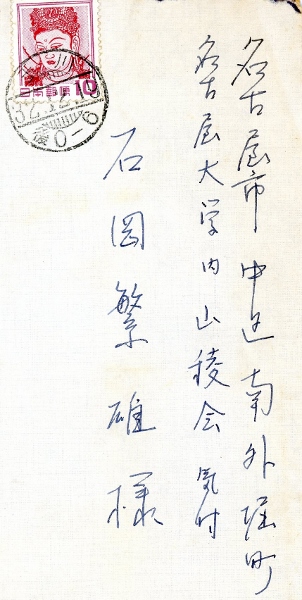 名古屋市中区南外堀町
名古屋大学内山稜会気付
石岡繁雄様
日本郵便
10